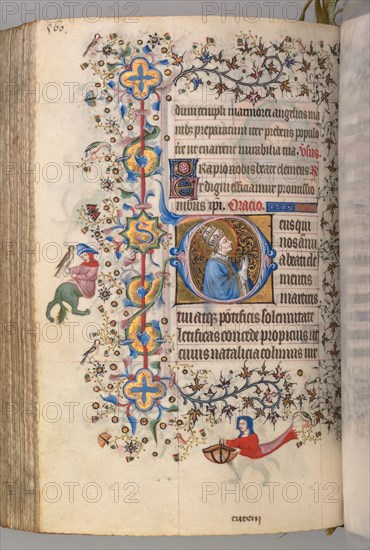 560.
dium templi marmorei angelicis ma
nibus preparatum iter prebens populo
re ut enarrent mirabilia tua. Vsus.
Ora pro nobis beate clemens. R
Ut digni efficiamur promissio
nibus xpi. Oracio.
Deus qui
nos annu
a beati cle
mentis
martiris
tui atq pontificis solennitate
letificas concede propicius ut
cuius natalicia colimus uir
PHOTO12